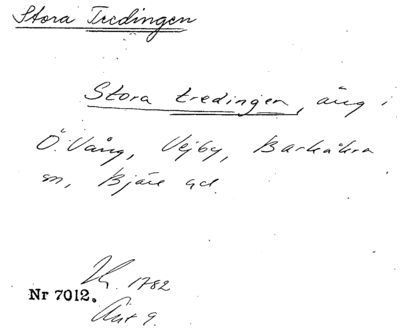 Stora Tredingen
Stora tredingen, äng i
Ö. Vång, Vejby, Barkåkra
sn, Bjäre hd.
1782
Nr 7012.
Akt 9.